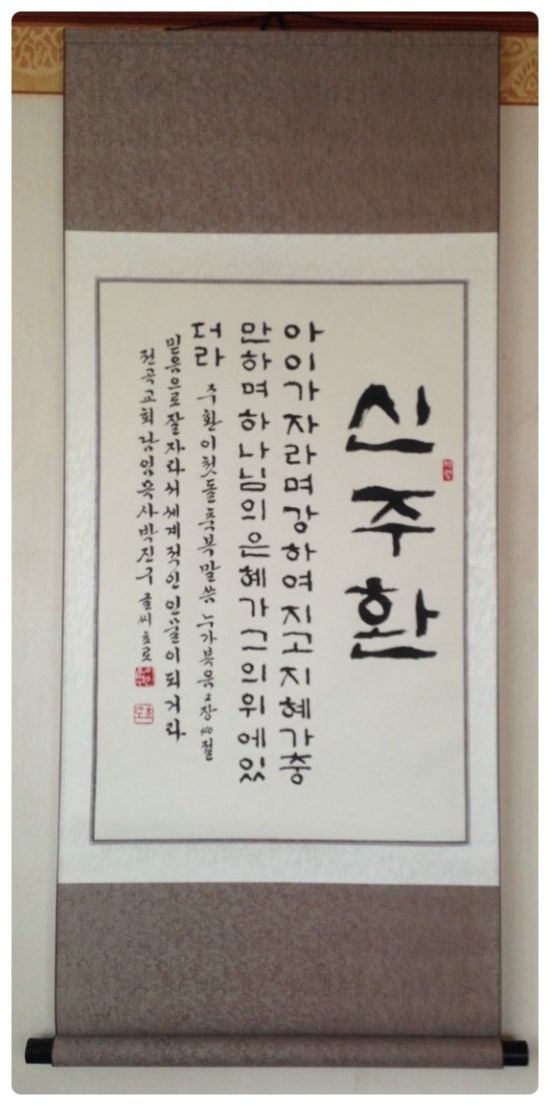 신주환
아이가자라며강하여지고지혜가충
만하며하나님의은혜가그의위에있
더라
주환이첫돌축복말씀 누가복음2장40절
믿음으로잘자라서세계적인인물이되거라
전곡교회담임목사박진구 글씨초로